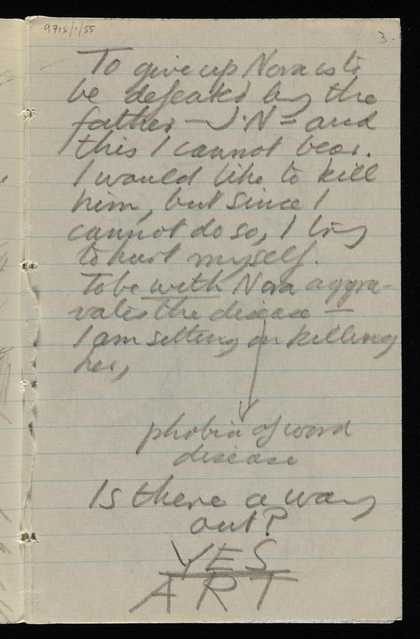 9715/1/55
3.
To give up Nora is to
be defeated by the
father — J.N — and
this I cannot bear.
I would like to kill
him, but since I
cannot do so, I try
to hurt myself.
To be with Nora aggra-
vates the disease —
I am setting on killing
her,
phobia of word
disease
Is there a way
out?
YES
ART